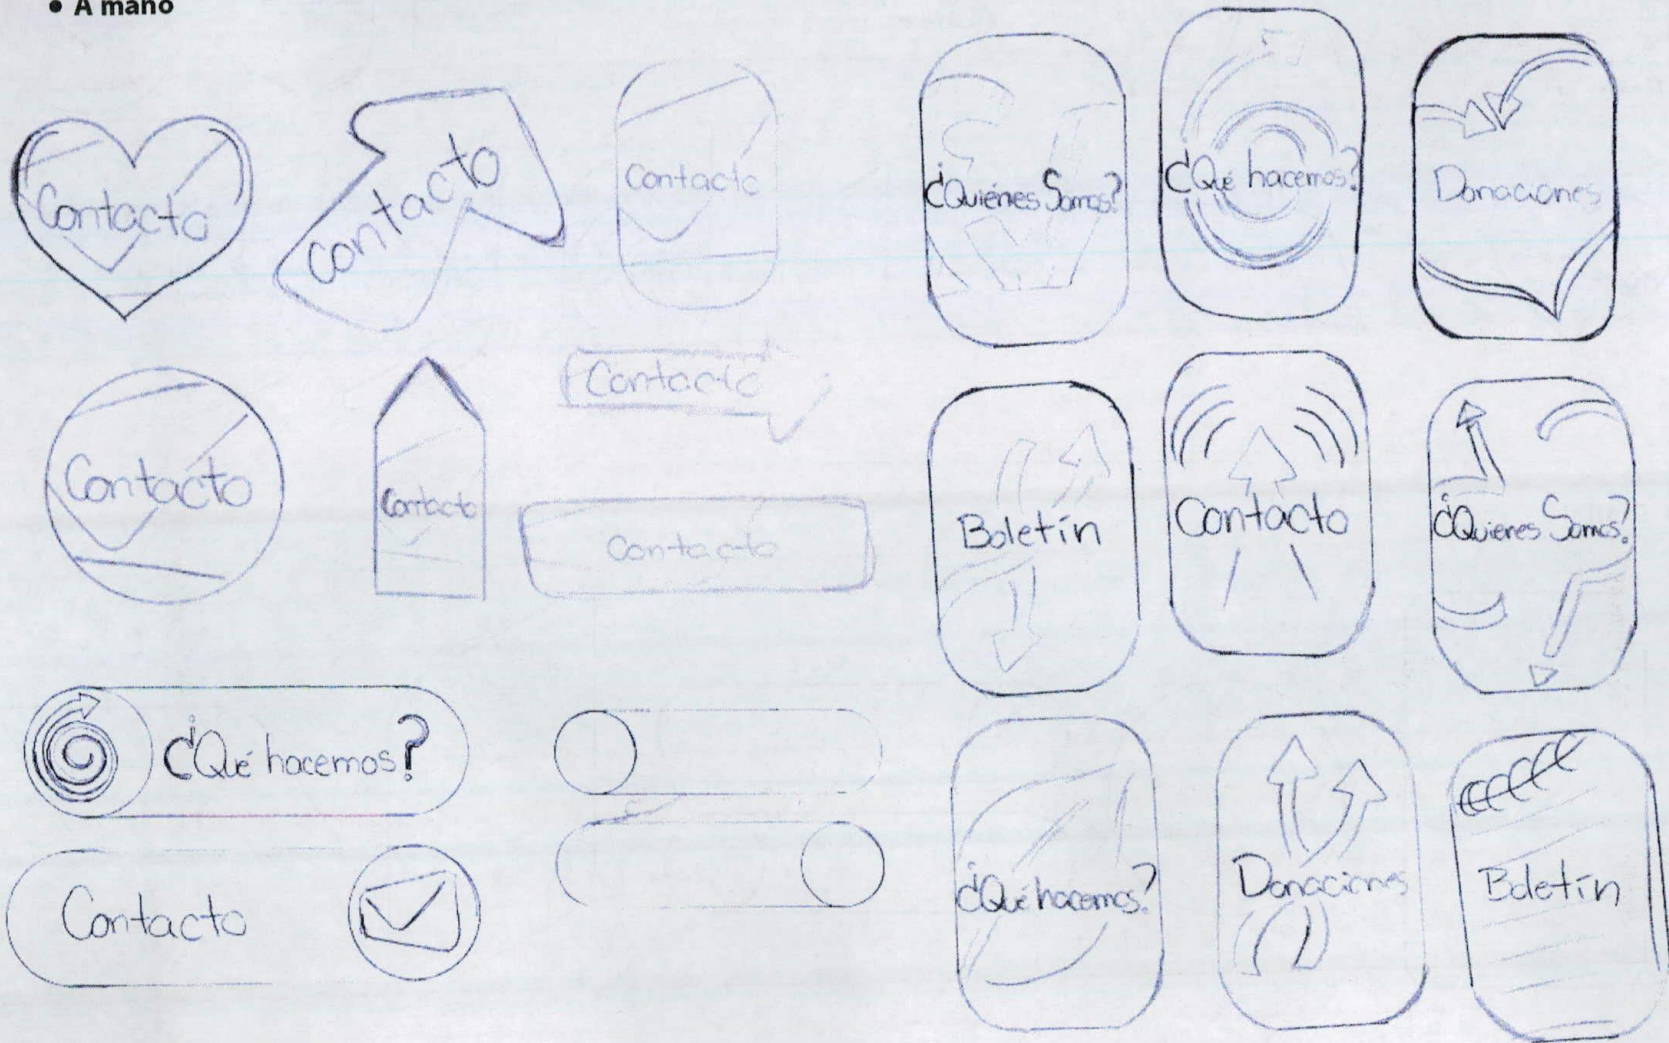 • A mano
Contacto
Contacto
Contacto
¿Quiénes Somos?
¿Qué hacemos?
Donaciones
Contacto
Contacto
Contacto
Contacto
Boletín
Contacto
¿Quienes Somos?
¿Qué hacemos?
Contacto
¿Qué hacemos?
Donaciones
Boletín